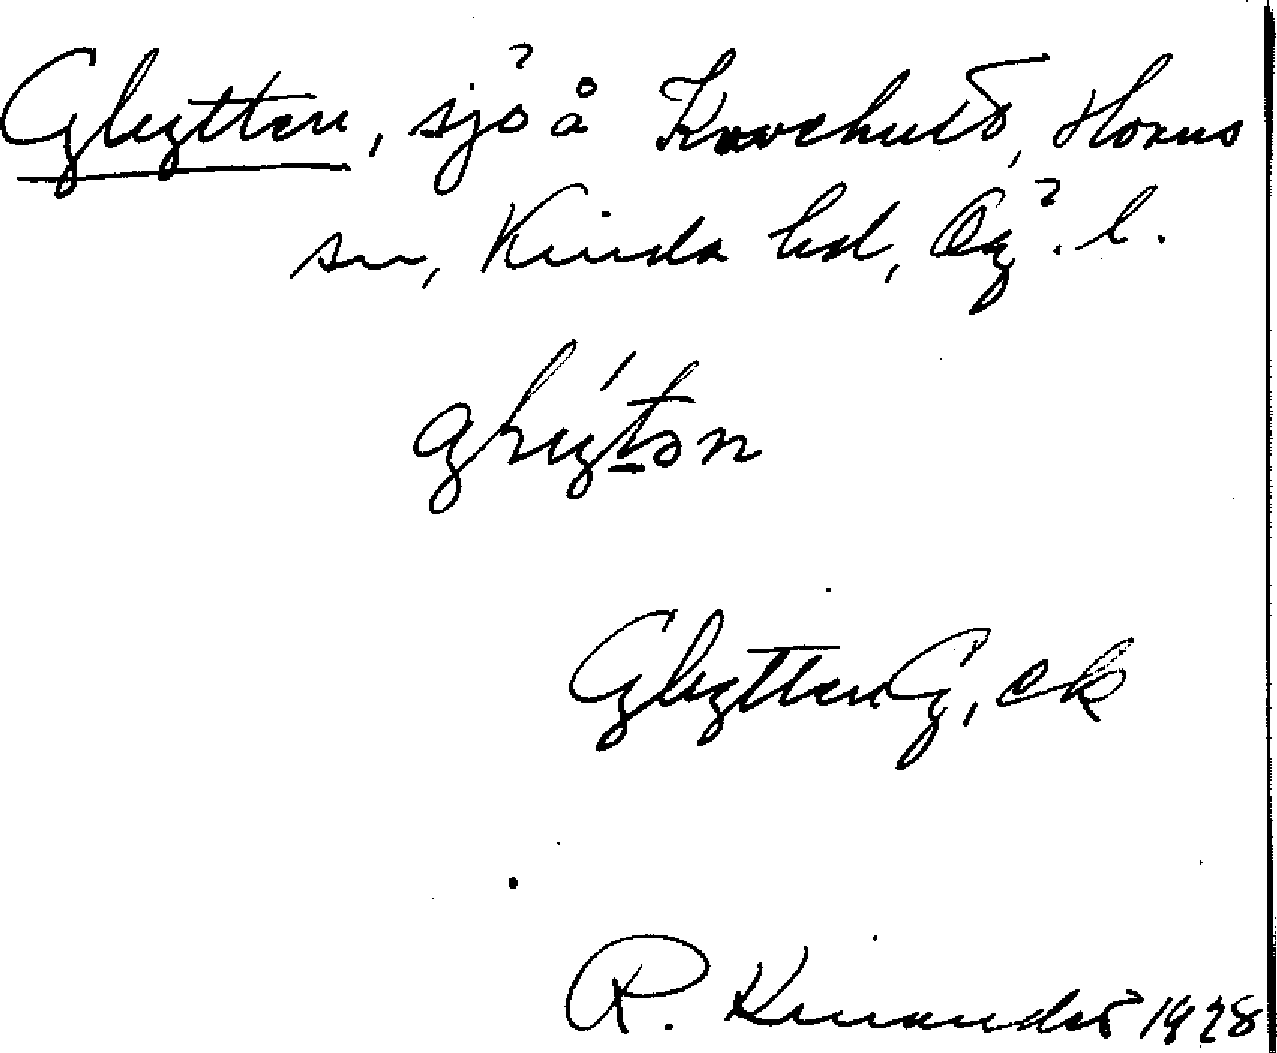 Glytten, sjö å Kroxhult, Horns
sn, Kinda hd, Ög. l.
glýtən
Glytten G, ek
R. Kinander 1928